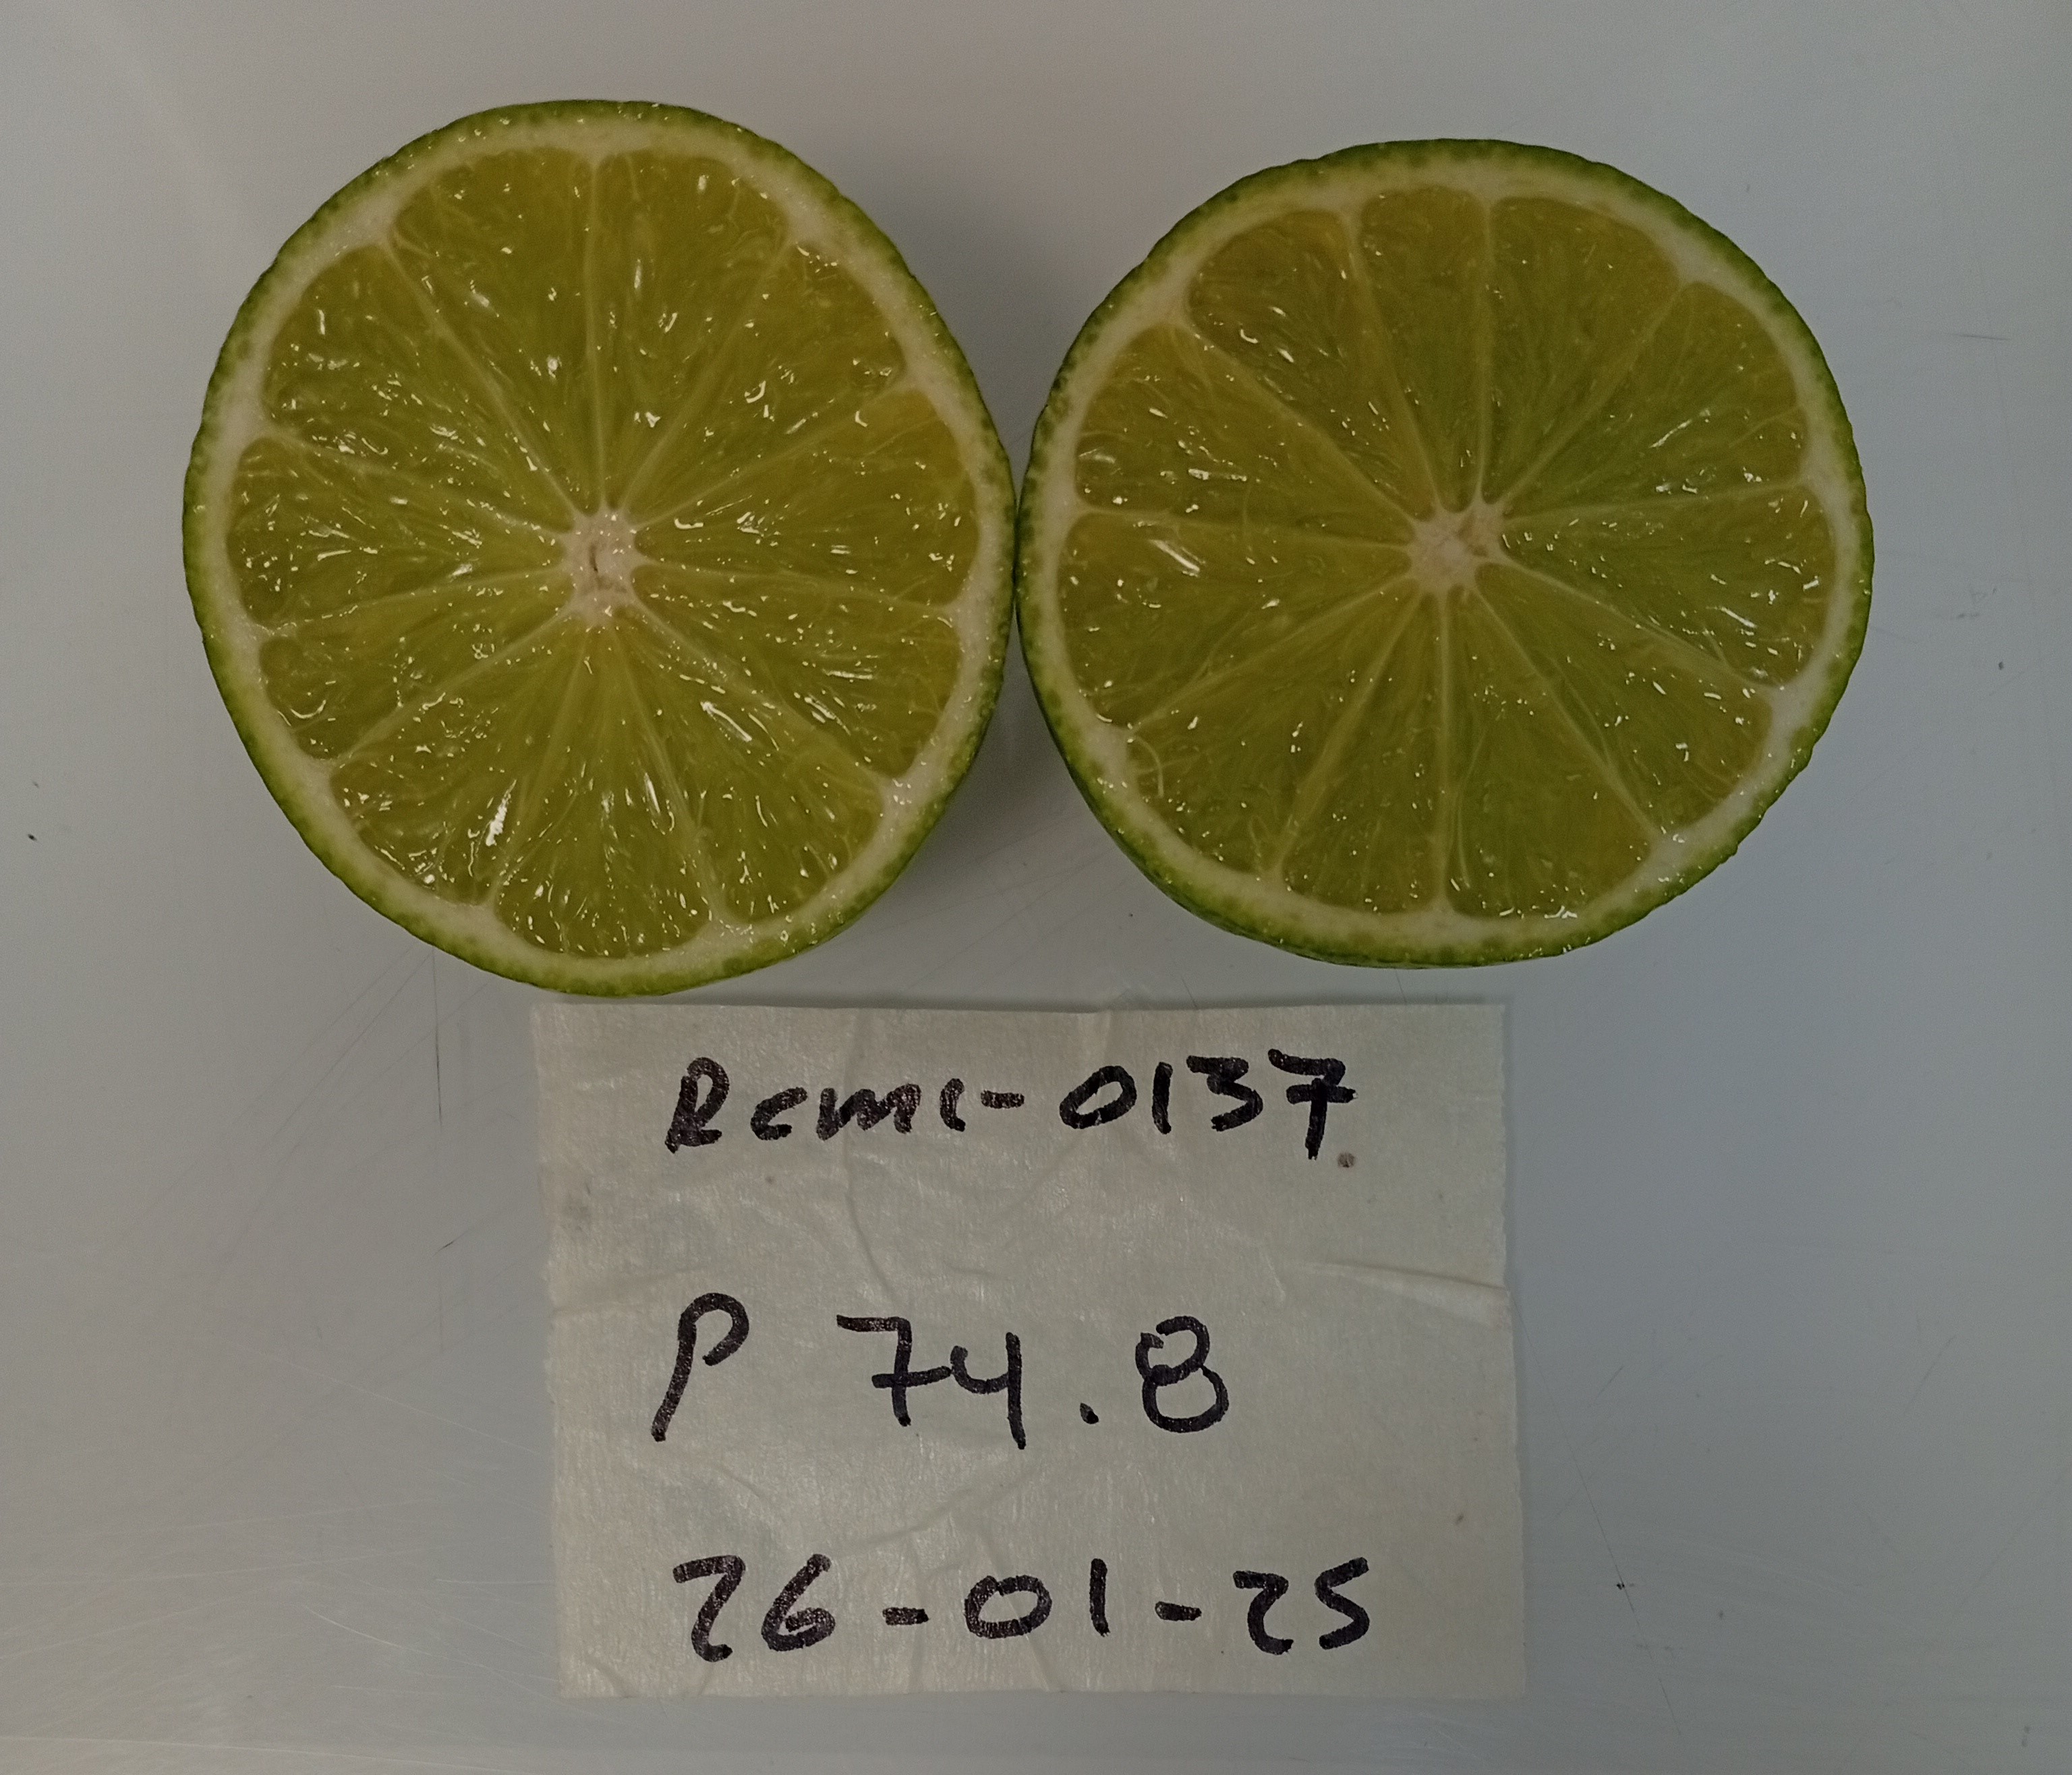 Rcmc-0137
P 74.8
26-01-25